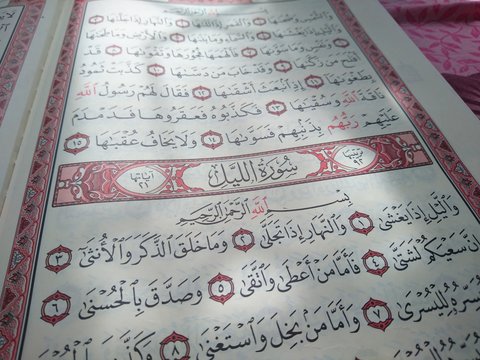 وَٱلشَّمْسِ وَضُحَىٰهَا ١ وَٱلْقَمَرِ إِذَا تَلَىٰهَا ٢ وَٱلنَّهَارِ إِذَا جَلَّىٰهَا
٣ وَٱلَّيْلِ إِذَا يَغْشَىٰهَا ٤ وَٱلسَّمَآءِ وَمَا بَنَىٰهَا ٥ وَٱلْأَرْضِ وَمَا طَحَىٰهَا
٦ وَنَفْسٍ وَمَا سَوَّىٰهَا ٧ فَأَلْهَمَهَا فُجُورَهَا وَتَقْوَىٰهَا ٨ قَدْ
أَفْلَحَ مَن زَكَّىٰهَا ٩ وَقَدْ خَابَ مَن دَسَّىٰهَا ١٠ كَذَّبَتْ ثَمُودُ
بِطَغْوَىٰهَآ ١١ إِذِ ٱنۢبَعَثَ أَشْقَىٰهَا ١٢ فَقَالَ لَهُمْ رَسُولُ ٱللَّهِ
نَاقَةَ ٱللَّهِ وَسُقْيَٰهَا ١٣ فَكَذَّبُوهُ فَعَقَرُوهَا فَدَمْدَمَ
عَلَيْهِمْ رَبُّهُم بِذَنۢبِهِمْ فَسَوَّىٰهَا ١٤ وَلَا يَخَافُ عُقْبَٰهَا ١٥
ترتيبها ٩٢ سُورَةُ اللَّيْلِ آياتها ٢١
بِسْمِ ٱللَّهِ ٱلرَّحْمَٰنِ ٱلرَّحِيمِ
وَٱلَّيْلِ إِذَا يَغْشَىٰ ١ وَٱلنَّهَارِ إِذَا تَجَلَّىٰ ٢ وَمَا خَلَقَ ٱلذَّكَرَ وَٱلْأُنثَىٰٓ ٣
إِنَّ سَعْيَكُمْ لَشَتَّىٰ ٤ فَأَمَّا مَنْ أَعْطَىٰ وَٱتَّقَىٰ ٥ وَصَدَّقَ بِٱلْحُسْنَىٰ ٦
لِلْيُسْرَىٰ ٧ وَأَمَّا مَنۢ بَخِلَ وَٱسْتَغْنَىٰ ٨ وَكَذَّبَ